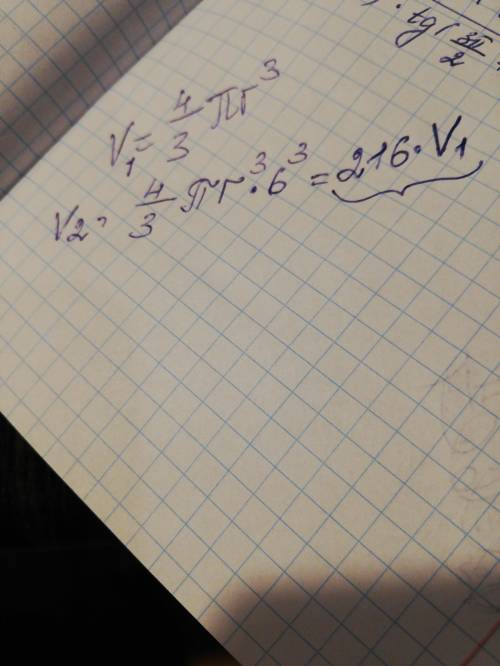 · tg( 3π/2
V₁ = 4/3 πr³
V₂ = 4/3 πr³ · 6³ = 216 · V₁